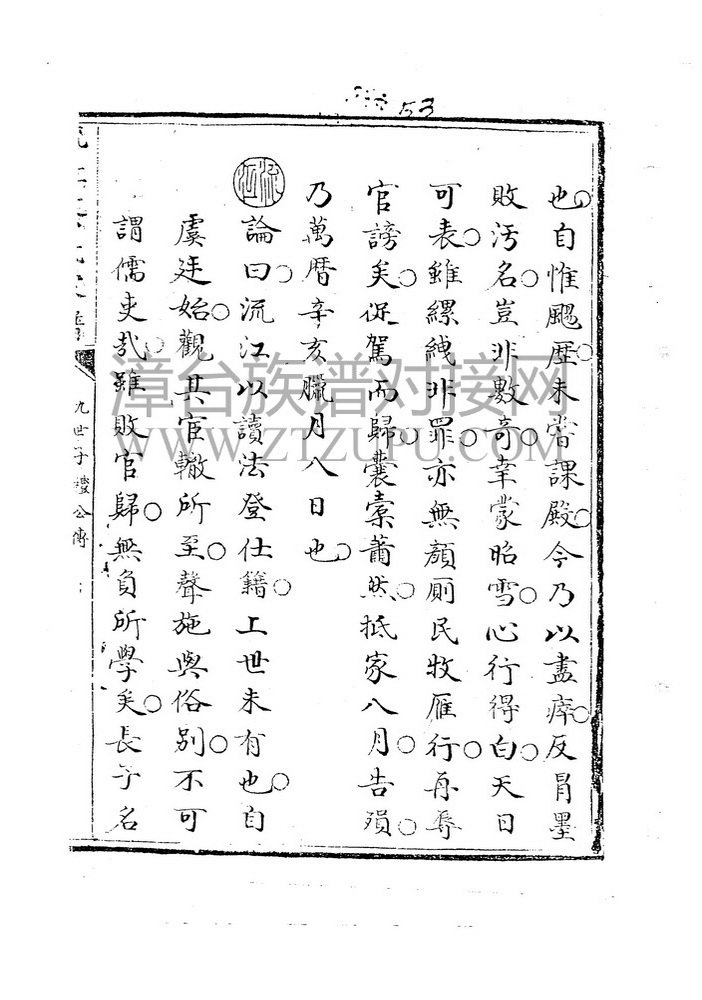 53
也自惟颺歷未嘗課殿今乃以盡瘁反冐墨
敗汚名豈非數奇幸蒙昭雪心行得白天日
可表雖縲絏非罪亦無顏廁民牧雁行再辱
官謗矣促駕而歸囊橐蕭然抵家八月告殞
乃萬曆辛亥臘月八日也
流江
論曰流江以讀法登仕籍上世未有也自
虞廷始觀其宦轍所至聲施與俗別不可
謂儒吏哉雖敗官歸無負所學矣長子名
九世子禮公傳
漳台族谱对接网
WWW.ZTZUPU.COM